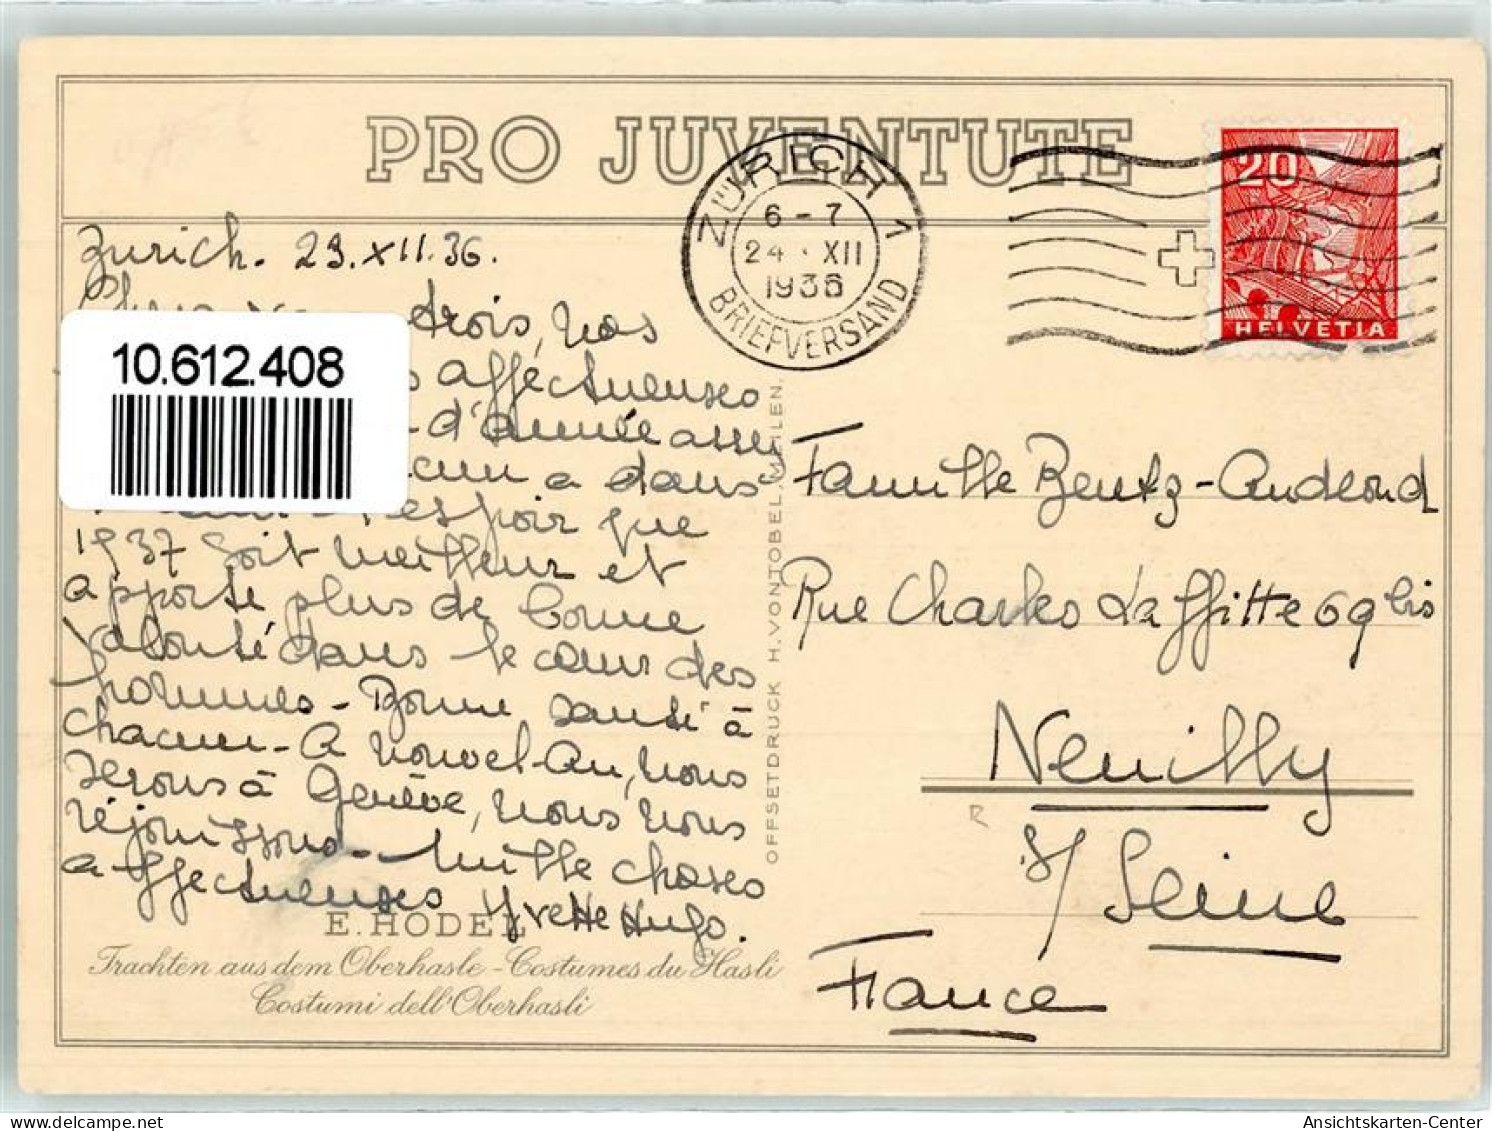 PRO JUVENTUTE
ZÜRICH 1
6-7
24. XII
1936
BRIEFVERSAND
20
HELVETIA
Zurich. 23.XII.36.
trois, vos
10.612.408
affectueuses
d'année assez
a dans
l'espoir que
1937 soit meilleur et
apporte plus de bonne
volonté dans le cœur des
hommes - Bonne santé à
chacun - A nouvel-An, nous
serons à Genève, nous nous
réjouissons - Mille choses
affectueuses Yvette Hugo.
E. HODEL
Trachten aus dem Oberhasle - Costumes du Hasli
Costumi dell'Oberhasli
OFFSETDRUCK H. VONTOBEL, MEILEN.
Famille Bentz-Audéoud
Rue Charles Laffitte 69 bis
Neuilly
s/ Seine
France
Ansichtskarten-Center